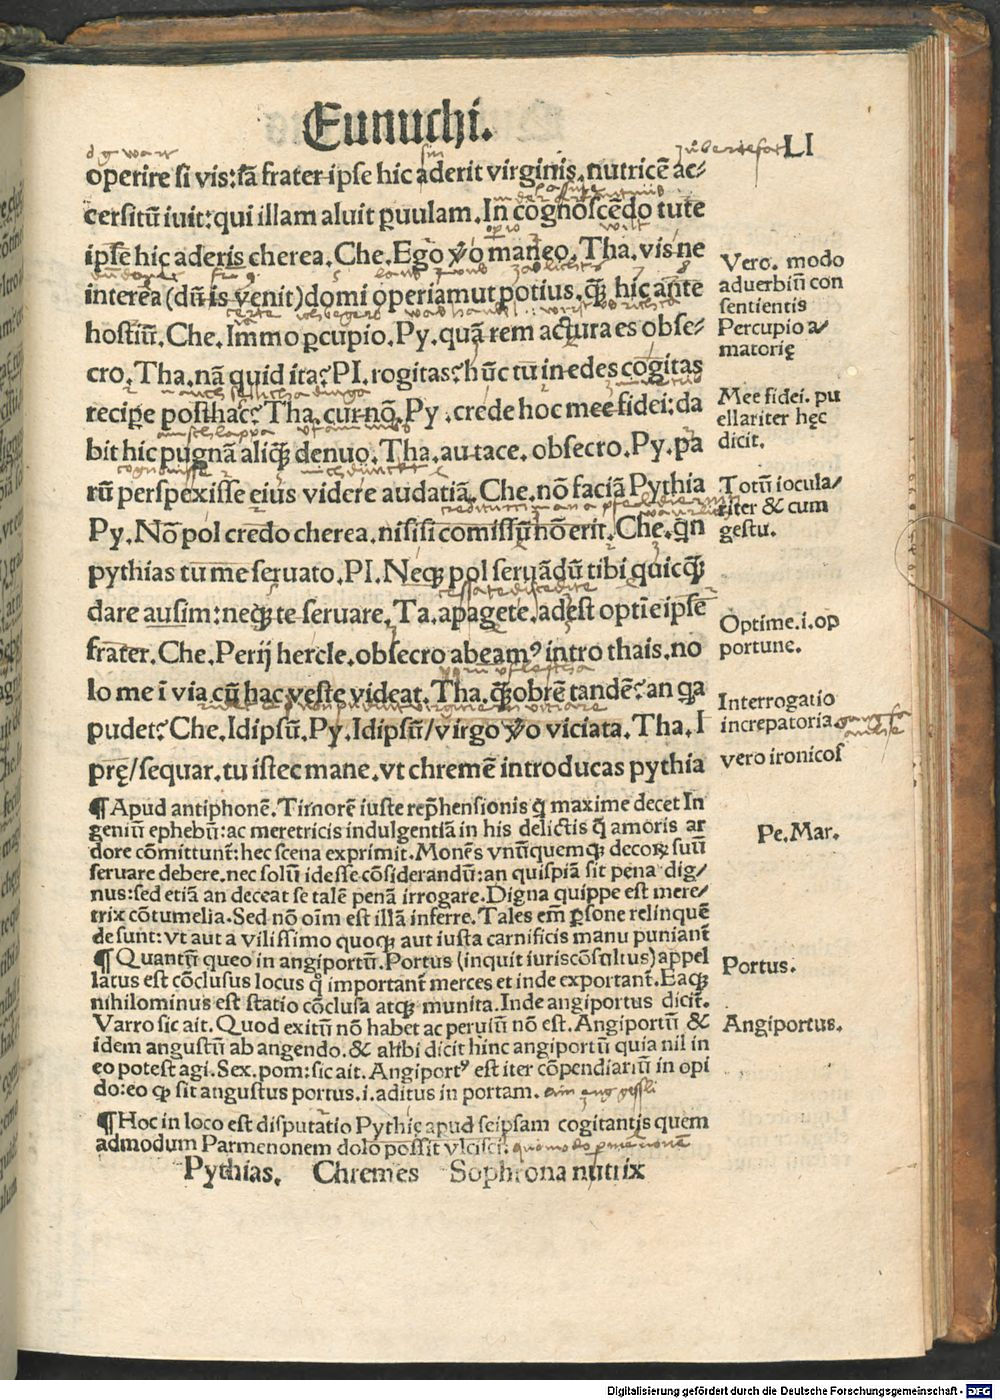 Eunuchi.
LI
operire si vis: iā frater ipse hic aderit virginis. nutricē ac⸗
cersitū iuit: qui illam aluit puulam. In cognoscēdo tute
ipse hic aderis cherea. Che. Ego v̄o maneo. Tha. vis ne
interea (dū is venit) domi operiamur potius. q̄ʒ hic ante
hostiū. Che. Immo ꝑcupio. Py. quā rem actura es obse⸗
cro. Tha. nā quid ita? PI. rogitas? hūc tu in edes cogitas
recipe posthac? Tha. cur nō. Py. crede hoc mee fidei: da
bit hic pugnā aliq̄ʒ denuo. Tha. au tace. obsecro. Py. pa
rū perspexisse eius videre audatiā. Che. nō faciā Pythia
Py. Nō pol credo cherea. nisi si comissū nō erit. Che. qn̄
pythias tu me seruato. PI. Neqʒ pol seruādū tibi quicq̄ʒ
dare ausim: neqʒ te seruare. Ta. apagete. adest optīe ipse
frater. Che. Perij hercle. obsecro abeamꝰ intro thais. no
lo me ī via cū hac veste videat. Tha. q̄ʒobrē tandē? an qa
pudet? Che. Idipsū. Py. Idipsū/ virgo v̄o viciata. Tha. I
pręˀ/ sequar. tu istec mane. vt chremē introducas pythia
Vero. modo
aduerbiū con
sentientis
Percupio a⸗
matorię
Mee fidei. pu
ellariter hęc
dicit.
Totū iocula⸗
riter & cum
gestu.
Optime. i. op
portune.
Interrogatio
increpatoria
vero ironicos
¶ Apud antiphonē. Timorē iuste rep̄hensionis q̄ maxime decet In
geniū ephebū: ac meretricis indulgentiā in his delictis q̄ amoris ar
dore cōmittunt: hec scena exprimit. Monēs vnūquemqʒ decorꝝ suū
seruare debere. nec solū id esse cōsiderandū: an quispiā sit pena dig⸗
nus: sed etiā an deceat se talē penā irrogare. Digna quippe est mere⸗
trix cōtumelia. Sed nō oīm est illā inferre. Tales em̄ ꝑsone relinquē
de sunt: vt aut a vilissimo quoqʒ aut iusta carnificis manu puniant
Pe. Mar.
¶ Quantū queo in angiportū. Portus (inquit iuriscōsultus) appel
latus est cōclusus locus q̊ important merces et inde exportant. Eaqʒ
nihilominus est statio cōclusa atqʒ munita. Inde angiportus dicit.
Varro sic ait. Quod exitū nō habet ac peruiū nō est. Angiportū &
idem angustū ab angendo. & alibi dicit hinc angiportū quia nil in
eo potest agi. Sex. pom: sic ait. Angiportꝰ est iter cōpendiariū in opi
do: eo ꝙ sit angustus portus. i. aditus in portam.
Portus.
Angiportus.
¶ Hoc in loco est disputatio Pythię apud seipsam cogitantis quem
admodum Parmenonem dolo possit vlcisci.
Pythias. Chremes Sophrona nutrix
Digitalisierung gefördert durch die Deutsche Forschungsgemeinschaft - DFG